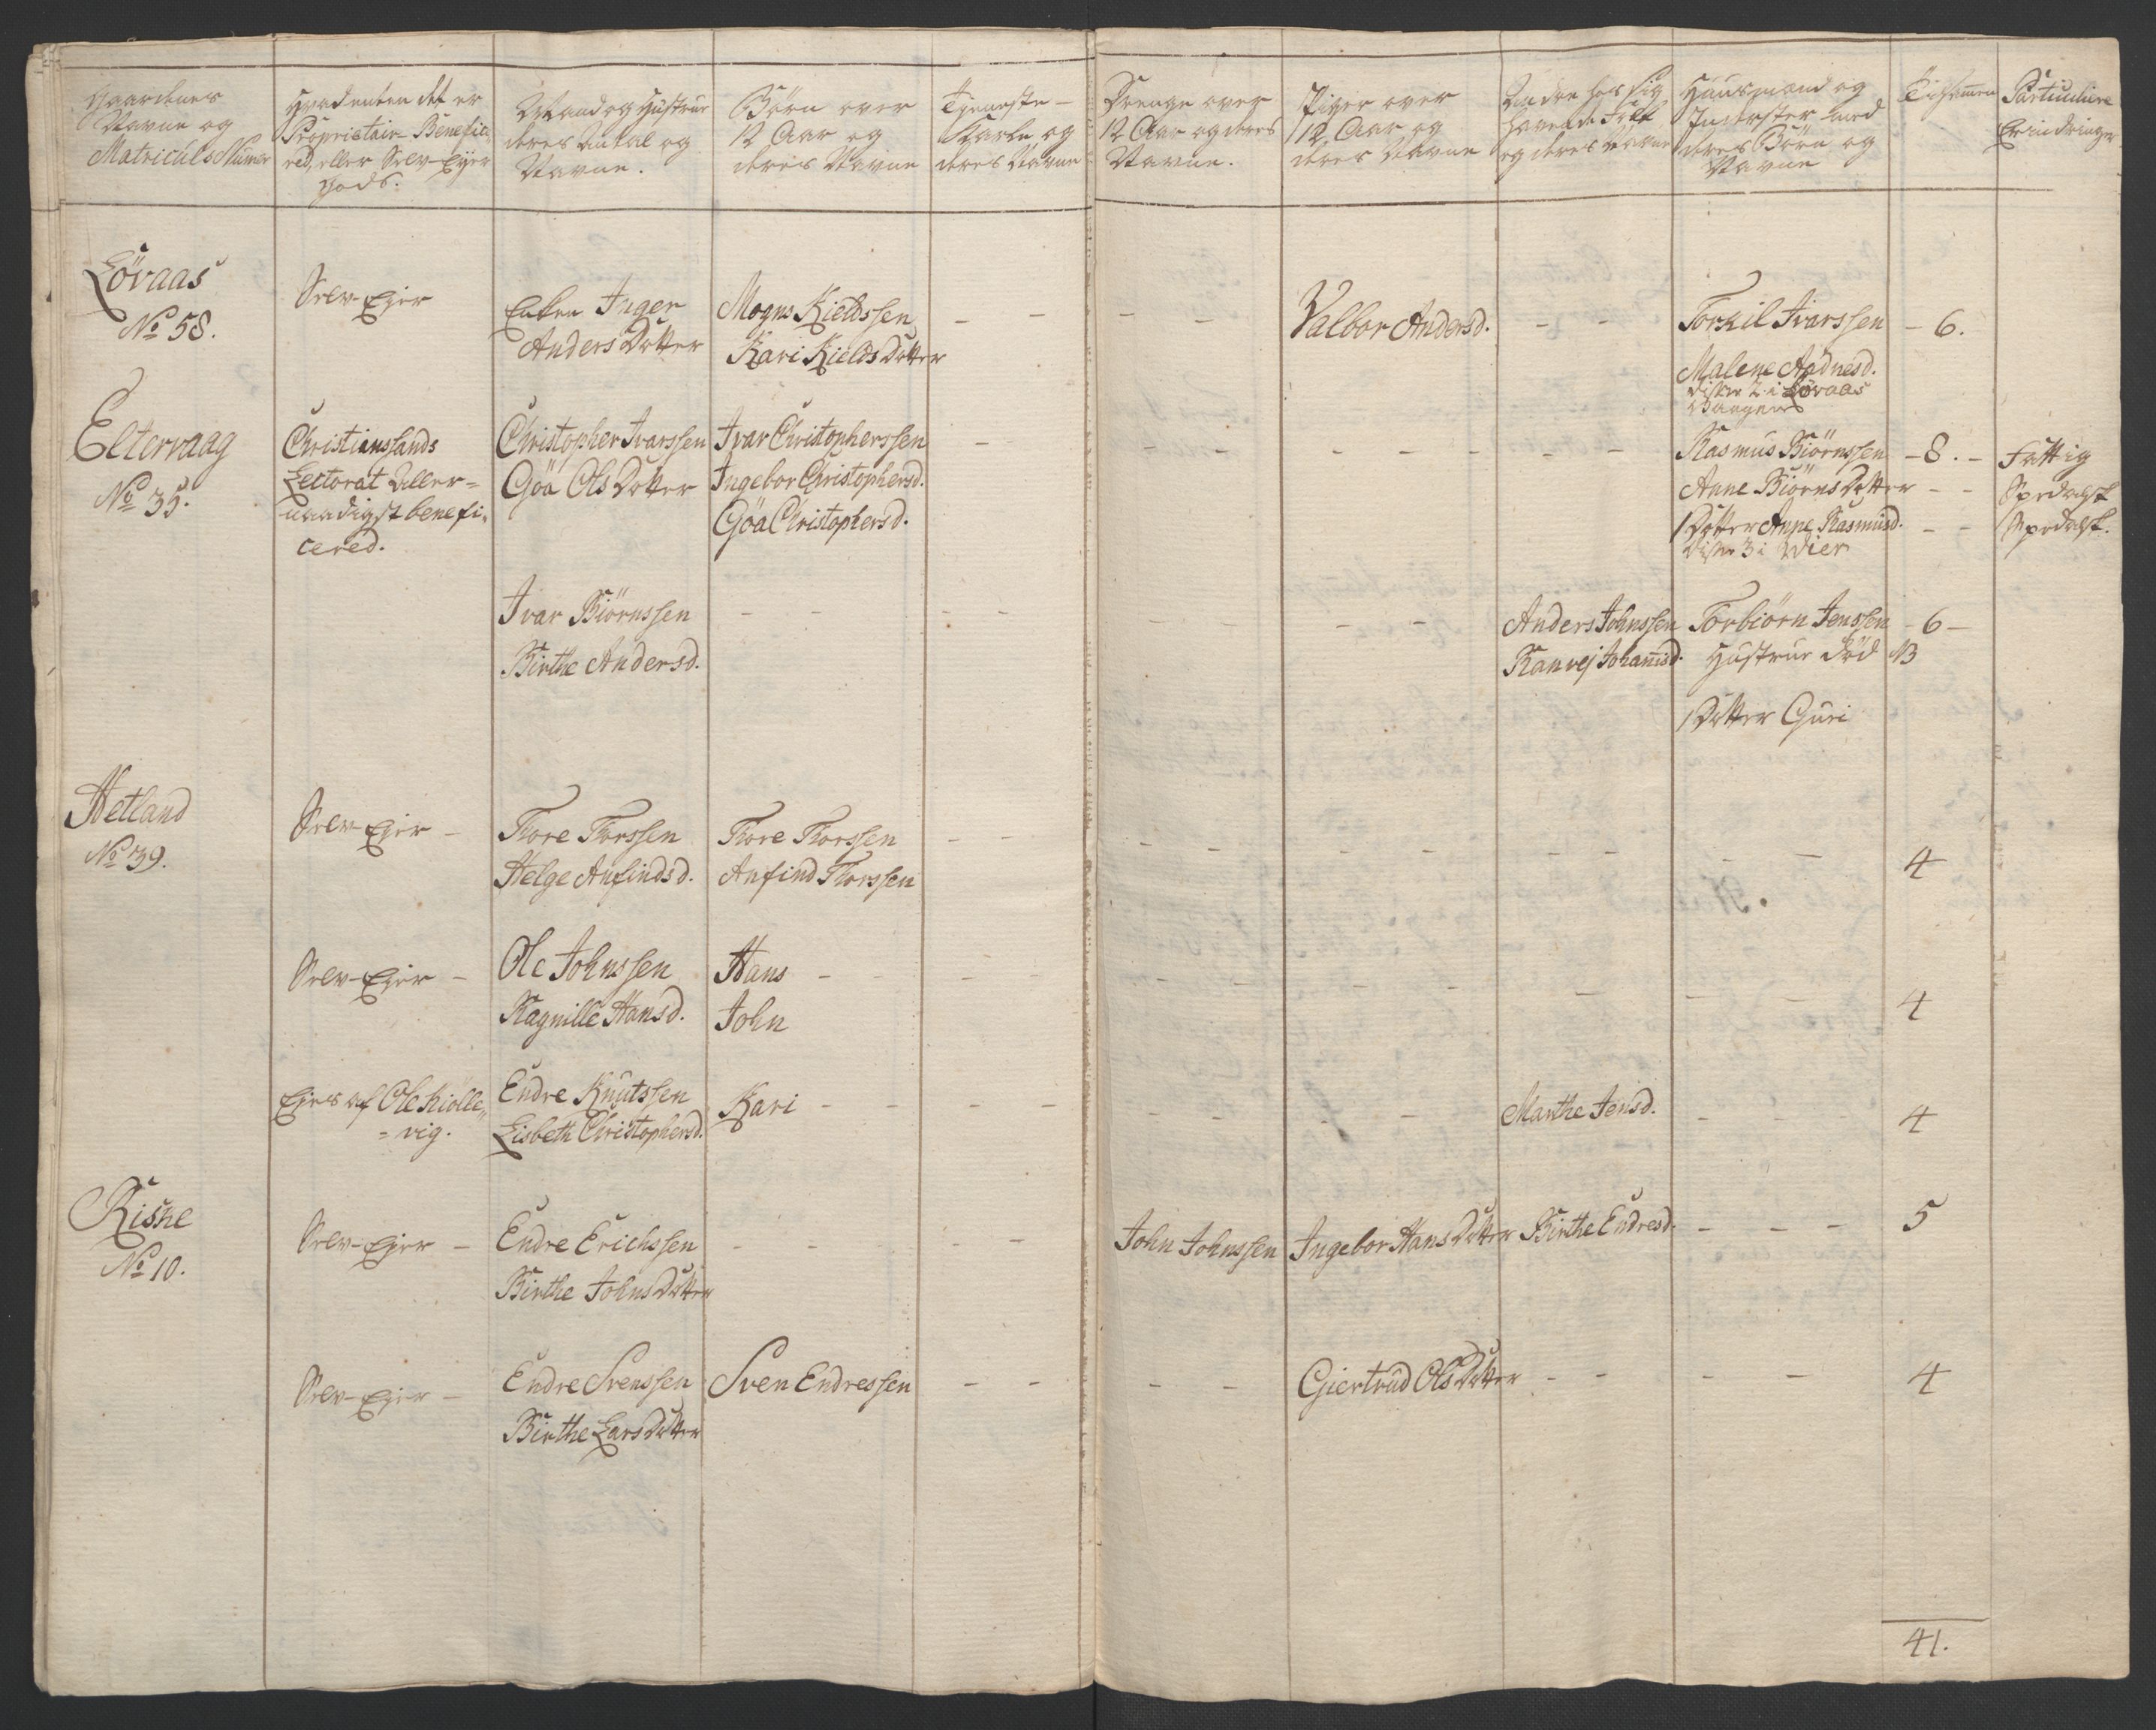 Gaardenes
Navne og
Matriculs Numer
Hvad enten det er
Proprietair- Benefice-
red, eller Selv-Eyer
Gods.
Mand og Hustrue
deres Antal og
Navne.
Börn over
12 Aar og
deres Navne
Tjeneste-
Karle og
deres Navne
Drenge over
12 Aar og deres
Navne.
Piger over
12 Aar og
deres Navne
Andre hos sig
havende Folk
og deres Navne
Huusmænd og
Inderster med
deres Börn og
Navne
Tilsammen
Particulaire
Erindringer
Lövaas
No 58.
Selv-Ejer
Enken Inger
Anders Dotter
Mogns Kieldssen
Kari Kields Dotter
- - - -
Valbor Andersd.
- -
Torkil Ivarssen
Malene Aadnesd.
disse 2 i Lövaas
Vaagen
- 6.
Eltervaag
No 35.
Christianssands
Lectorat Aller=
naadigst benefi-
cered.
Christopher Ivarssen
Göa Ols Dotter
Ivar Christopherssen
Ingebor Christophersd.
Göa Christophersd.
- - - - - - - -
Rasmus Biörnssen
Anne Biörns Dotter
1 Dotter Anne Rasmusd.
disse 3 i Wier
- 8. -
Fattig
Spedalsk
Spedalsk.
Ivar Biörnssen
Birthe Andersd.
- - - - - - - -
Anders Johnssen
Ranvej Johannisd.
Torbiörn Jenssen
Hustrue död
1 Dotter Guri
- 6 -
NB
Hetland
No 39.
Selv-Ejer -
Thore Thorssen
Helge Anfindsd.
Thore Thorssen
Anfind Thorssen
- - - - - - - - - -
4
Selv-Ejer -
Ole Johnssen
Ragnille Hansd.
Hans - -
John
- - - - - - - - -
4
Ejes af Ole Kiölle-
=vig.
Endre Knutssen
Lisbeth Christophersd.
Kari - -
- - - - - -
Marthe Jensd.
- - -
4
Riske
No 10.
Selv-Ejer -
Endre Erichssen
Birthe Johns Dotter
- - - -
John Johnssen
Ingebor Hans Dotter
Birthe Endresd.
- - -
5
Selv-Ejer -
Endre Svenssen
Birthe Lars Dotter
Sven Endressen
- - - -
Giertrud Ols Dotter
- - - -
4
41.